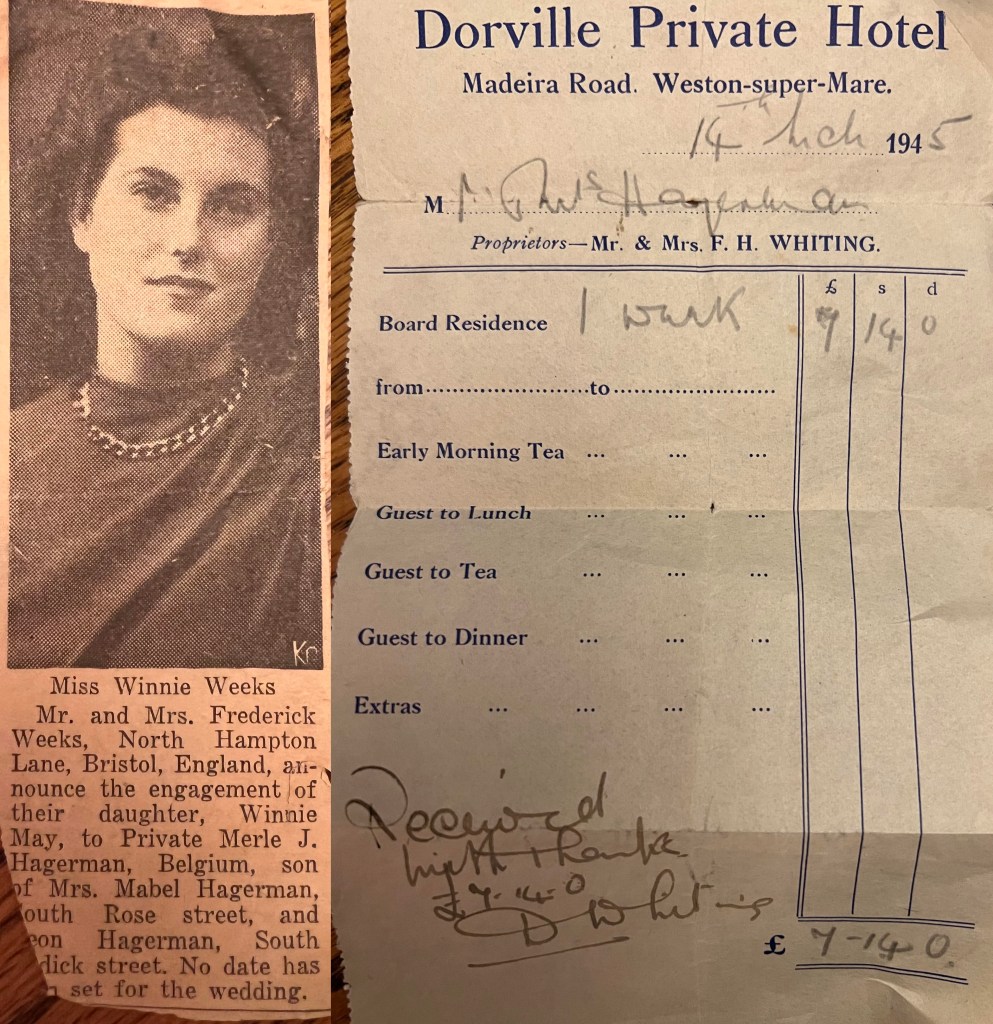 Kr
Miss Winnie Weeks
Mr. and Mrs. Frederick
Weeks, North Hampton
Lane, Bristol, England, an-
nounce the engagement of
their daughter, Winnie
May, to Private Merle J.
Hagerman, Belgium, son
of Mrs. Mabel Hagerman,
outh Rose street, and
eon Hagerman, South
dick street. No date has
set for the wedding.
Dorville Private Hotel
Madeira Road. Weston-super-Mare.
14th Mch 1945
M Hagerman
Proprietors—Mr. & Mrs. F. H. WHITING.
£ s d
Board Residence 1 week 7 14 0
from to
Early Morning Tea ... ... ...
Guest to Lunch ... ... ...
Guest to Tea ... ... ...
Guest to Dinner ... ... ...
Extras ... ... ...
Received
with thanks
£7-14-0
D Whiting
£ 7-14-0.